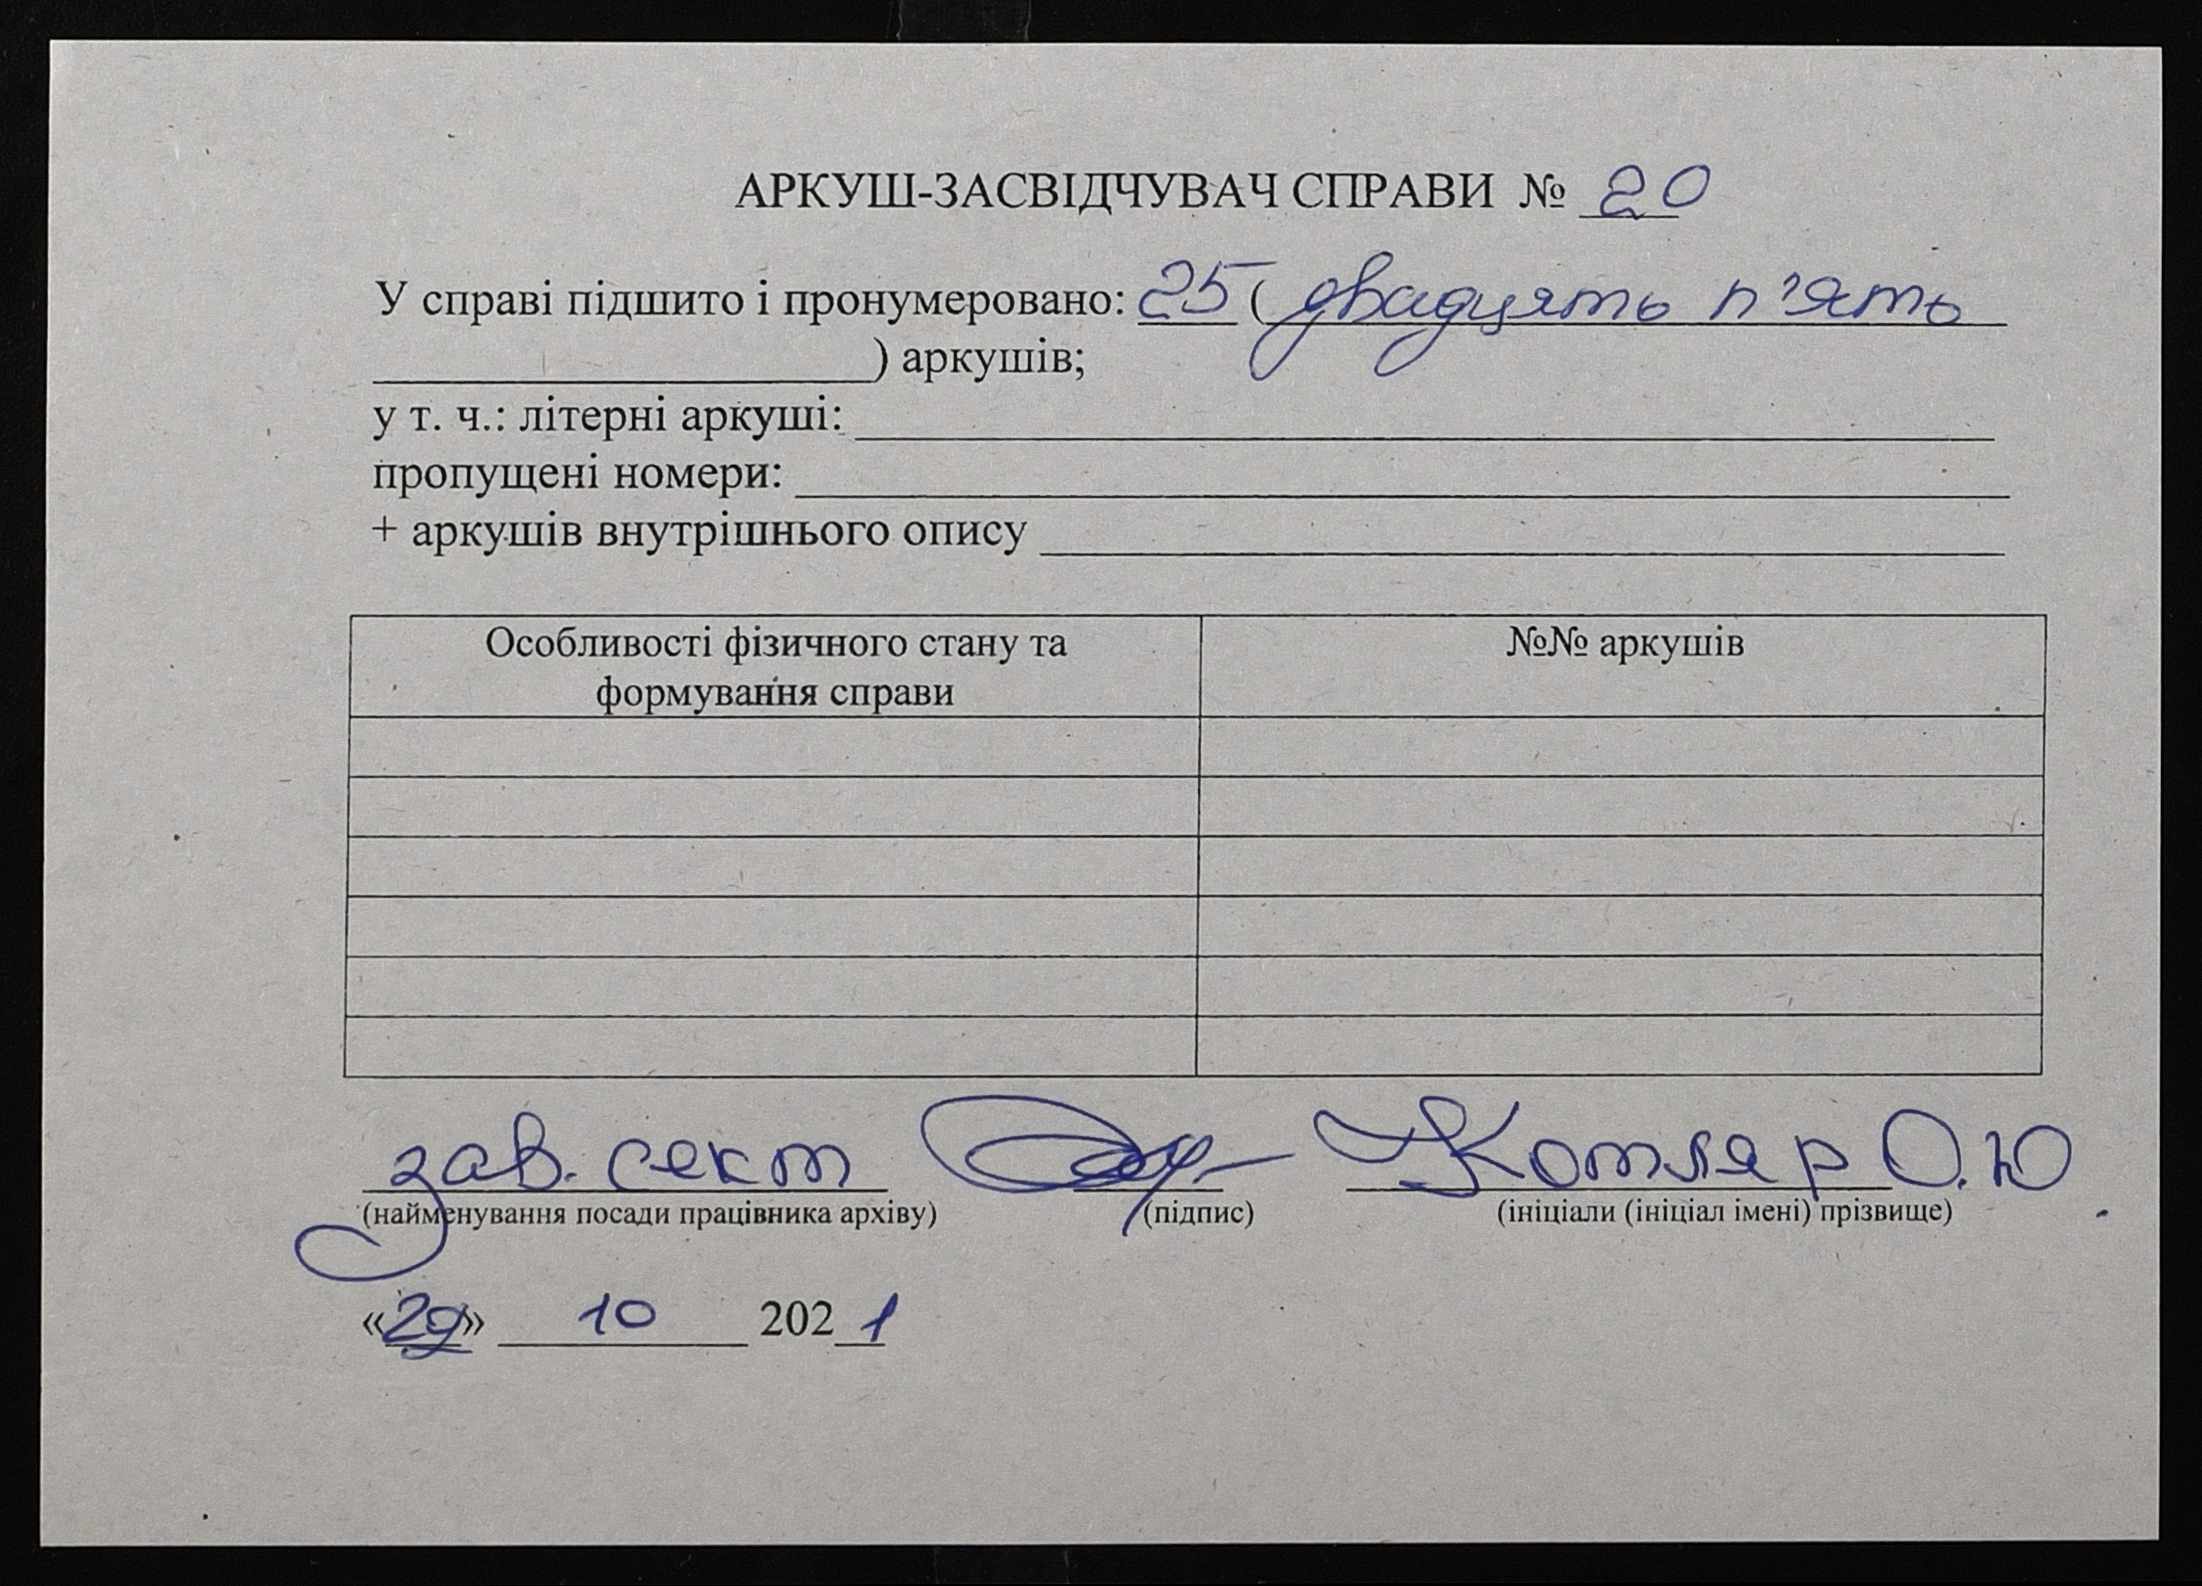 АРКУШ-ЗАСВІДЧУВАЧ СПРАВИ № 20
У справі підшито і пронумеровано: 25 ( двадцять п'ять
) аркушів;
у т. ч.: літерні аркуші:
пропущені номери:
+ аркушів внутрішнього опису
Особливості фізичного стану та
формування справи
№№ аркушів
зав. сект Котляр О.Ю
(найменування посади працівника архіву) (підпис) (ініціали (ініціал імені) прізвище)
«29» 10 2021